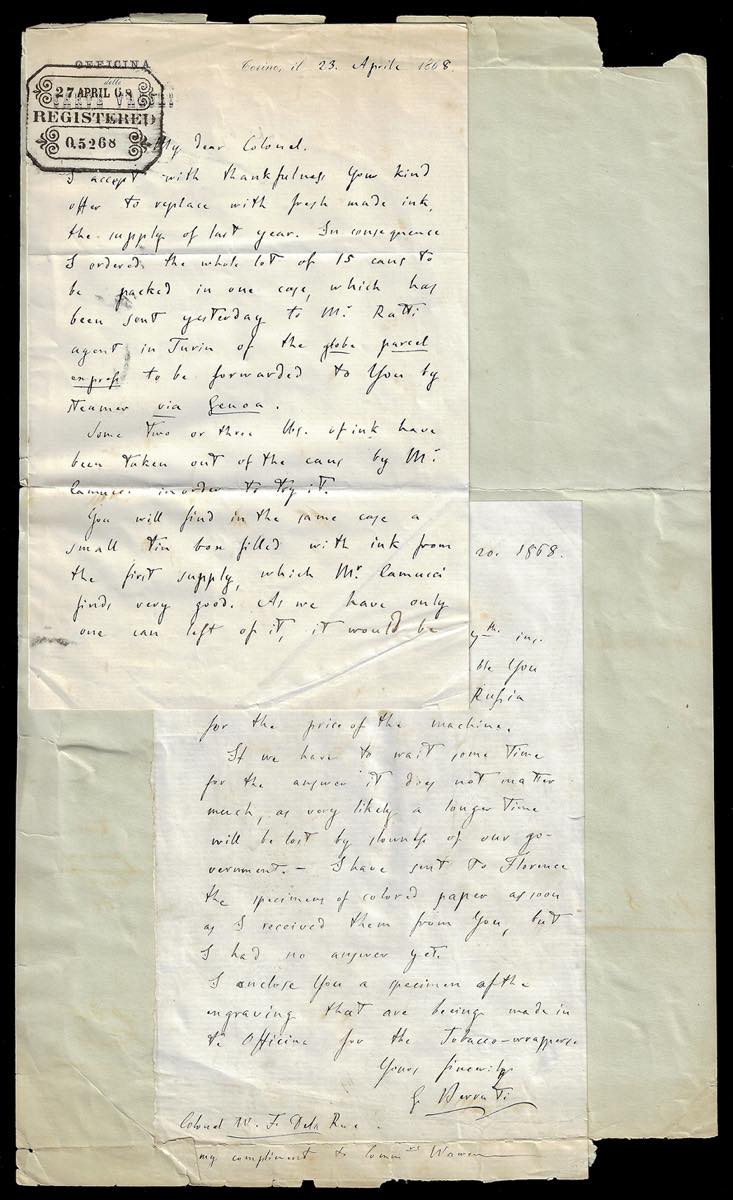 OFFICINA
delle
CARTE VALORI
27 APRIL 68
REGISTERED
0.5268
Torino, il 23. Aprile 1868.
My dear Colonel.
I accept with thankfulness Your kind
offer to replace with fresh made ink,
the supply of last year. In consequence
I ordered the whole lot of 15 cans to
be packed in one case, which has
been sent yesterday to Mr. Ratti
agent in Turin of the globe parcel
express to be forwarded to You by
steamer via Genoa.
Some two or three lbs. of ink have
been taken out of the cans by Mr.
Camucci in order to try it.
You will find in the same case a
small tin box filled with ink from
the first supply, which Mr. Camucci
finds very good. As we have only
one can left of it, it would be
20. 1868.
th. ins.
ble You
Russia
for the price of the machine.
If we have to wait some time
for the answer it does not matter
much, as very likely a longer time
will be lost by slowness of our go-
vernment. – I have sent to Florence
the specimens of colored paper as soon
as I received them from You, but
I had no answer yet.
I enclose You a specimen of the
engraving that are beeing made in
te Officine for the Tobacco-wrappers.
Yours sincerily
Colonel W. F. Dela Rue.
my compliment to